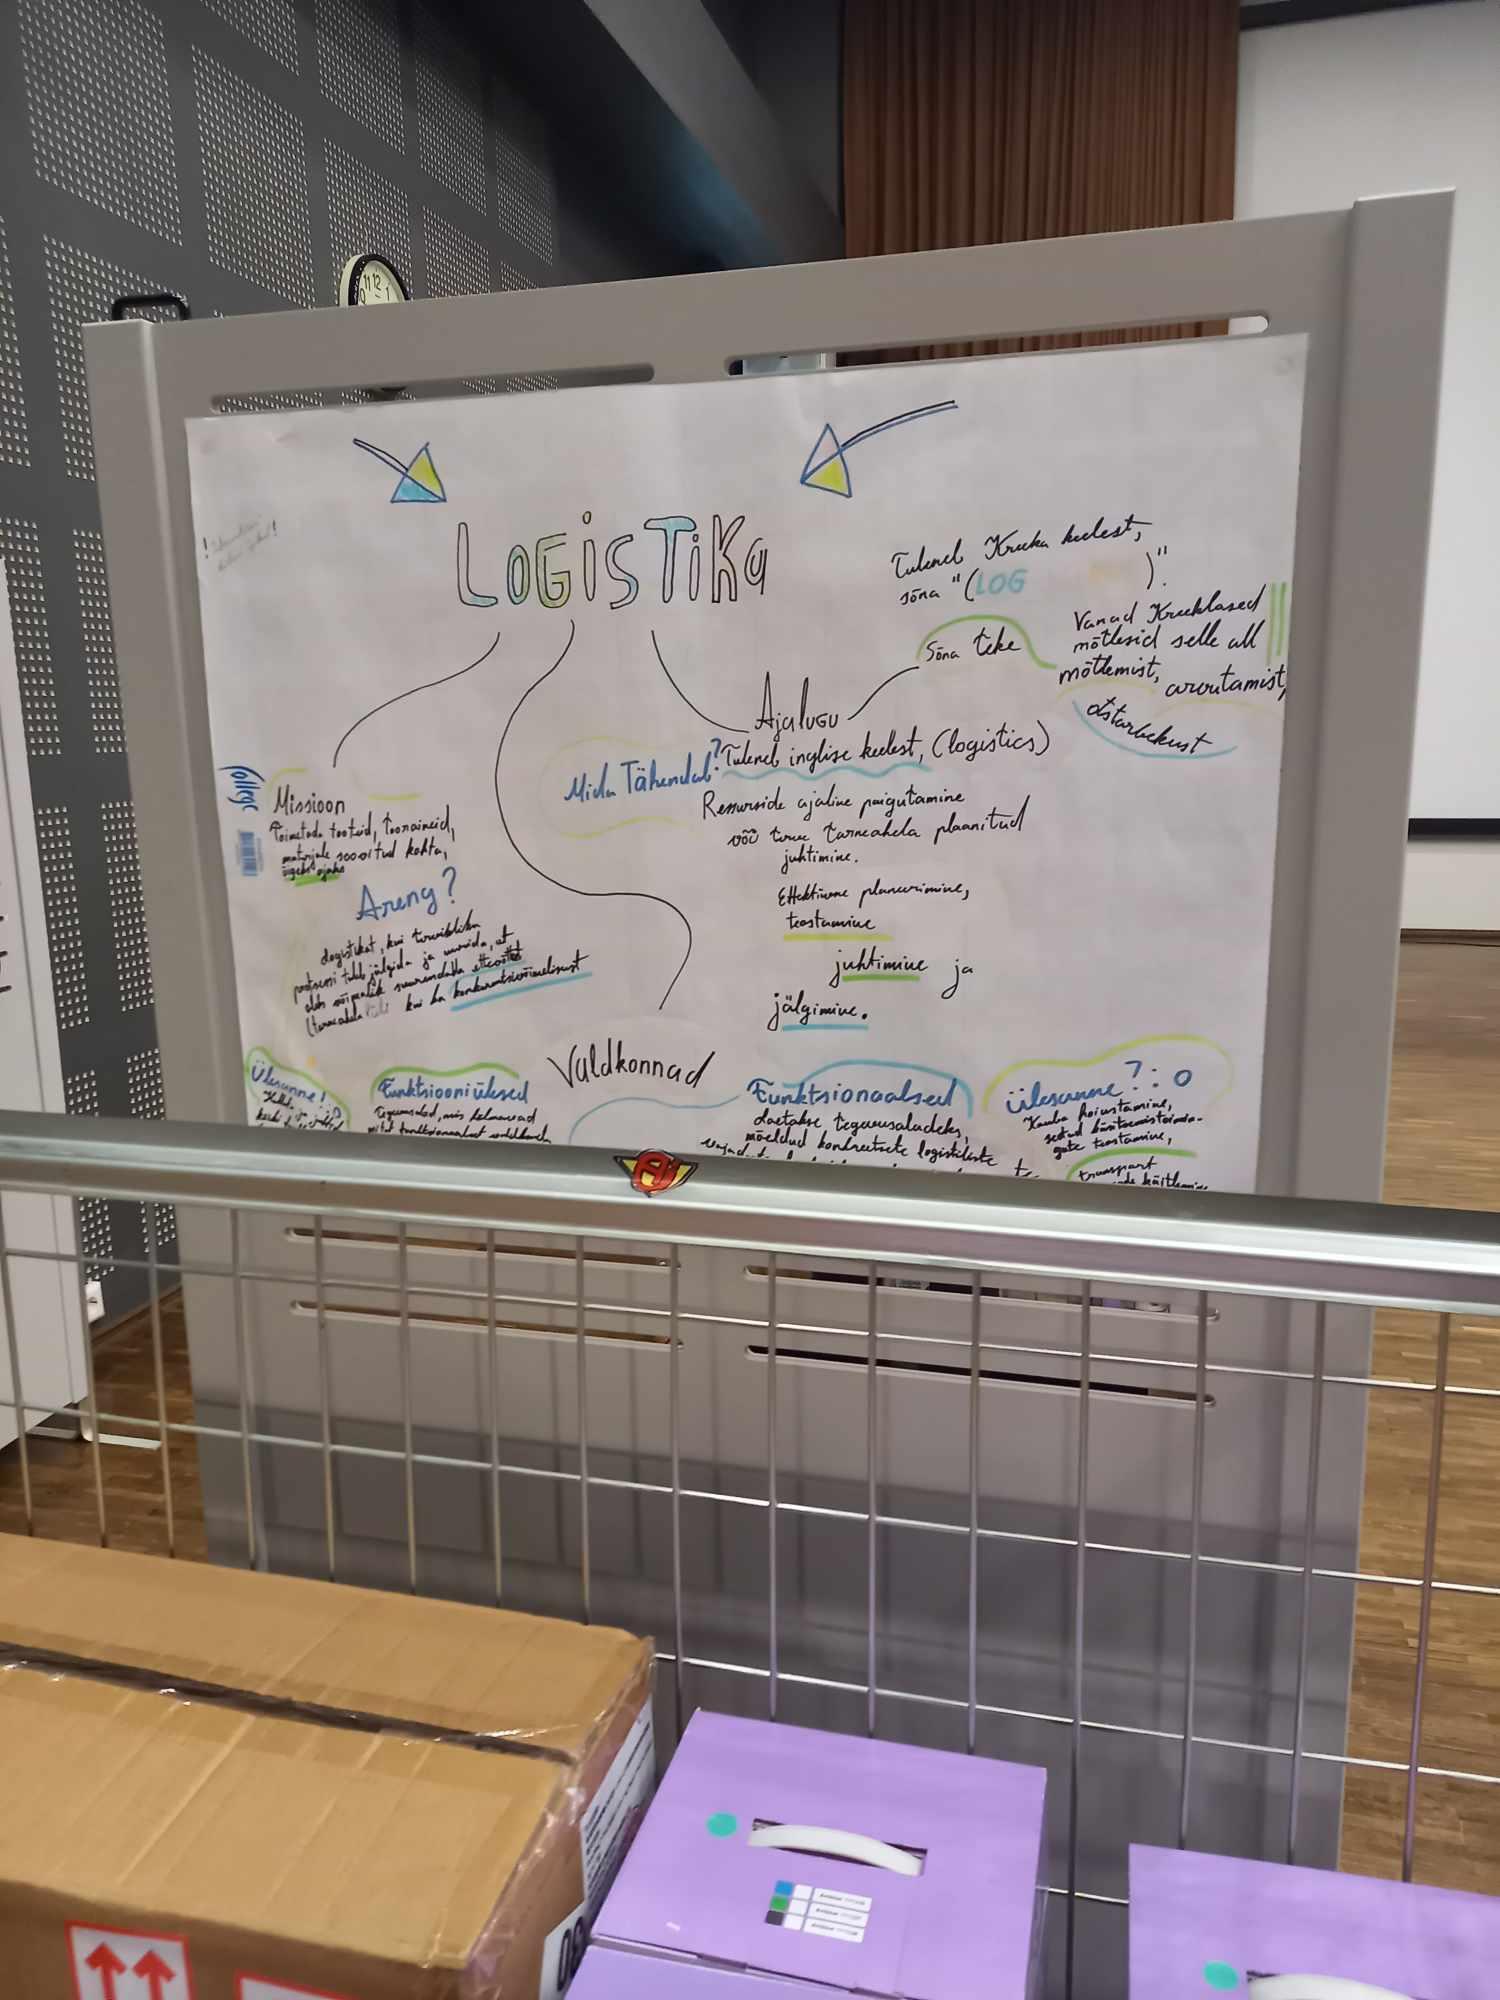 LOGISTIKa
Tuleneb Kreeka keelest,
sõna "(LOG )".
Sõna teke
Vanad Kreeklased
mõtlesid selle all
mõtlemist, arvutamist,
otstarbekust
Ajalugu
Mida Tähendab?
Tuleneb inglise keelest, (logistics)
Ressurside ajaline paigutamine
või terve tarneahela plaanitud
juhtimine.
Effektiivne planeerimine,
teostamine
juhtimine ja
jälgimine.
college
Missioon
Toimetada tooteid, tooraineid,
materjale soovitud kohta,
õigeks ajaks
Areng?
Logistikat, kui terviklikku
protsessi tuleb jälgida ja uurida, et
oleks võimalik suurendada ettevõtte
(tarneahela kui ka konkurentsivõimelisust
Valdkonnad
Ülesanne!
Funktsiooniülesed
Tegevusalad, mis hõlmavad
mitut funktsionaalset valdkonda
Funktsionaalsed
Loetakse tegevusaladeks,
mõeldud konkreetsete logistiliste
Ülesanne?:O
Kauba hoiustamine,
gute teostamine,
transport
11 12 1